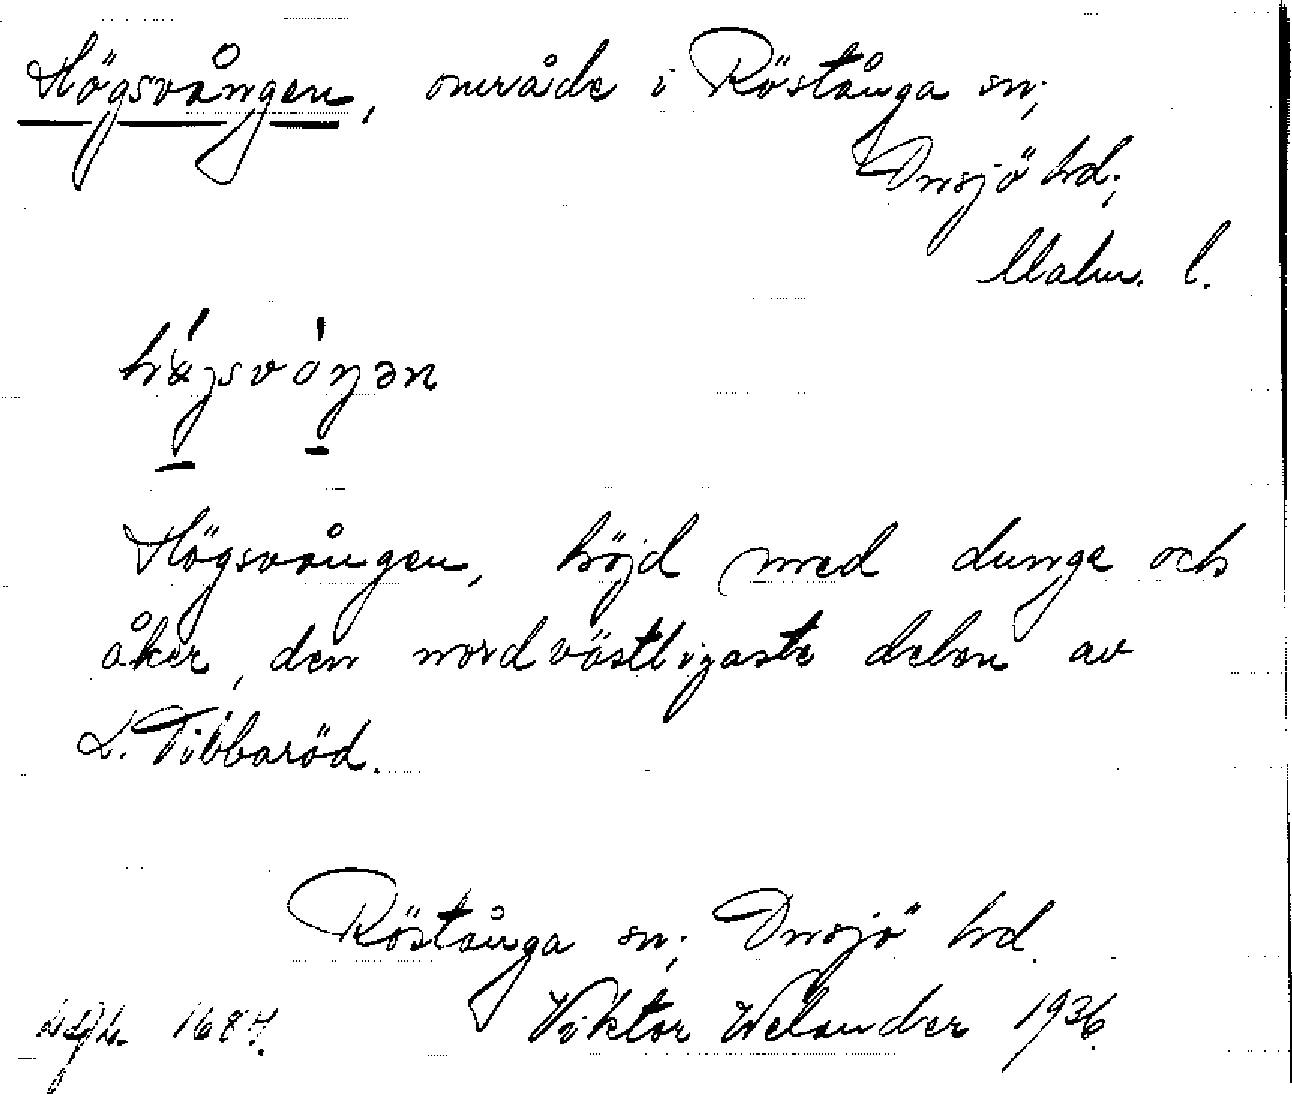 Högsvången, område i Röstånga sn;
Onsjö hd;
Malm. l.
högsvåŋən
Högsvången, höjd med dunge och
åker, den nordvästligaste delen av
L. Tibbaröd.
Röstånga sn; Onsjö hd.
1684. Viktor Welander 1936.